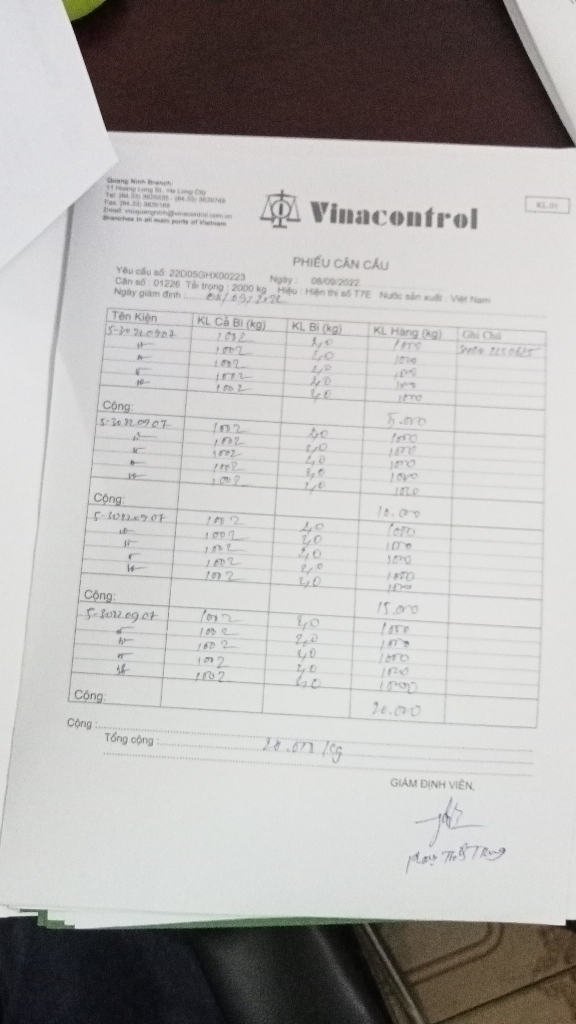 Quang Ninh Branch:
11 Hoang Long St., Ha Long City
Branches in all main ports of Vietnam
Vinacontrol
KL.01
PHIẾU CÂN CẨU
Yêu cầu số: 22D05GHX00223 Ngày : 08/09/2022
Cân số : 01226 Tải trọng : 2000 kg Hiệu : Hiện thị số T7E Nước sản xuất : Việt Nam
Ngày giám định :
Tên Kiện KL Cả Bì (kg) KL Bì (kg) KL Hàng (kg) Ghi Chú
5-30220907 1002 2,0 1000
1002 2,0 1000
1002 2,0 1000
1002 2,0 1000
1002 2,0 1000
Cộng: 5.000
5-30220907 1002 2,0 1000
1002 2,0 1000
1002 2,0 1000
1002 2,0 1000
1002 2,0 1000
Cộng: 10.000
5-30220907 1002 2,0 1000
1002 2,0 1000
1002 2,0 1000
1002 2,0 1000
1002 2,0 1000
Cộng: 15.000
5-30220907 1002 2,0 1000
1002 2,0 1000
1002 2,0 1000
1002 2,0 1000
1002 2,0 1000
Cộng: 20.000
Cộng :
Tổng cộng : kg
GIÁM ĐỊNH VIÊN,